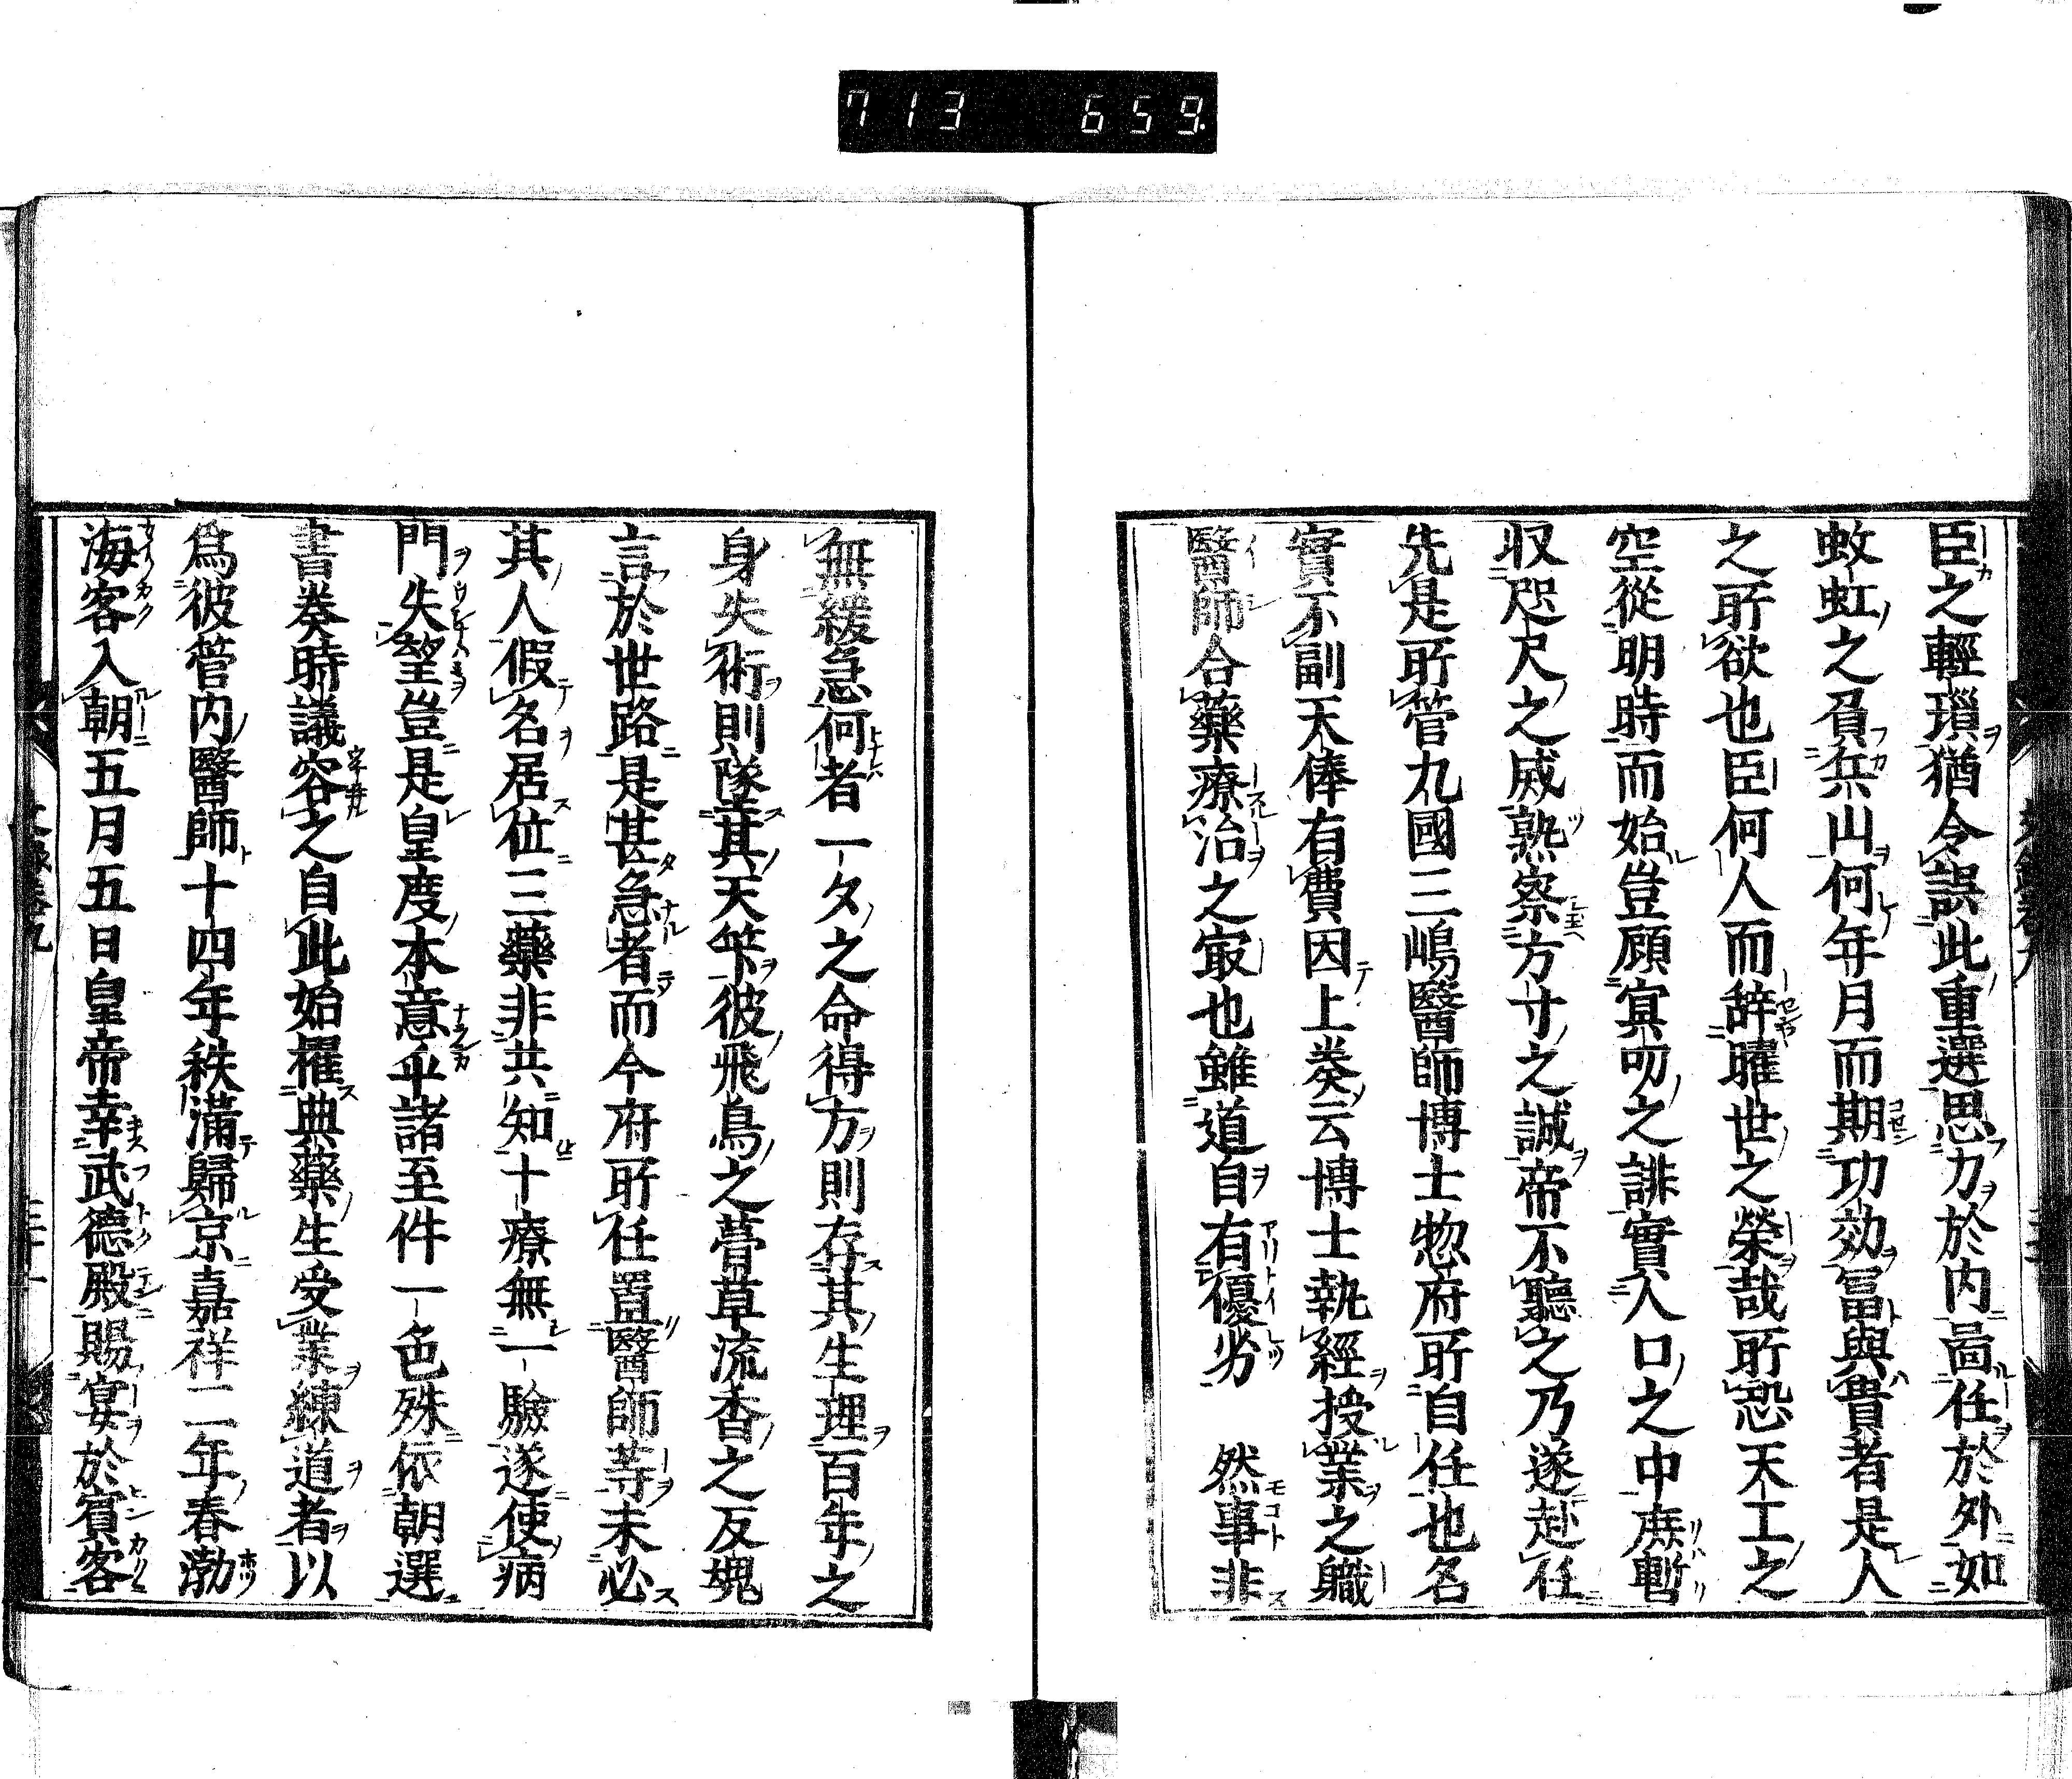 713 659
臣之輕瑣猶令誤此重選思力於内啚任於外如
蚊虻之負兵山何年月而期功効冨與貴者是人
之所欲也臣何人而辞曜世之榮哉所恐天工之
空從明時而始豈顧寘叨之誹實人口之中庶暫
収咫尺之威熟察方寸之誠帝不聽之乃遂赴任
先是所管九國三嶋醫師博士惣府所自任也名
實不副天俸有費因上奏云博士執經授業之職
醫師合藥療治之冣也雖道自有優劣 然事非
無緩急何者一夕之命得方則存其生理百年之
身失術則墜其天筭彼飛鳥之薈草流香之反魂
言於世路是甚急者而今府所任置醫師等未必
其人假名居位三藥非共知十療無一驗遂使病
門失望豈是皇度本意乎諸至件一色殊依朝選
書奏時議容之自此始擢典藥生受業練道者以
爲彼管内醫師十四年秩滿歸京嘉祥二年春渤
海客入朝五月五日皇帝幸武德殿賜宴於賓客